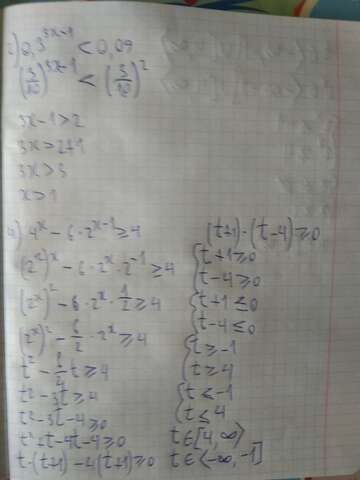 2) 0,3^{3x-1} < 0,09
(3/10)^{3x-1} < (3/10)^2
3x-1>2
3x=2+1
3x>3
x>1
4) 4^x - 6·2^{x-1} ≥ 4
(2^2)^x - 6·2^x·2^{-1} ≥ 4
(2^x)^2 - 6·2^x·1/2 ≥ 4
(2^x)^2 - 6/2·2^x ≥ 4
t^2 - 6/2 t ≥ 4
t^2 - 3t ≥ 4
t^2 - 3t - 4 ≥ 0
t^2 + t - 4t - 4 ≥ 0
t·(t+1) - 4(t+1) ≥ 0
(t+1)·(t-4) ≥ 0
{t+1 ≥ 0
t-4 ≥ 0
{t+1 ≤ 0
t-4 ≤ 0
{t ≥ -1
t ≥ 4
{t ≤ -1
t ≤ 4
t∈[4, ∞⟩
t∈⟨-∞, -1]